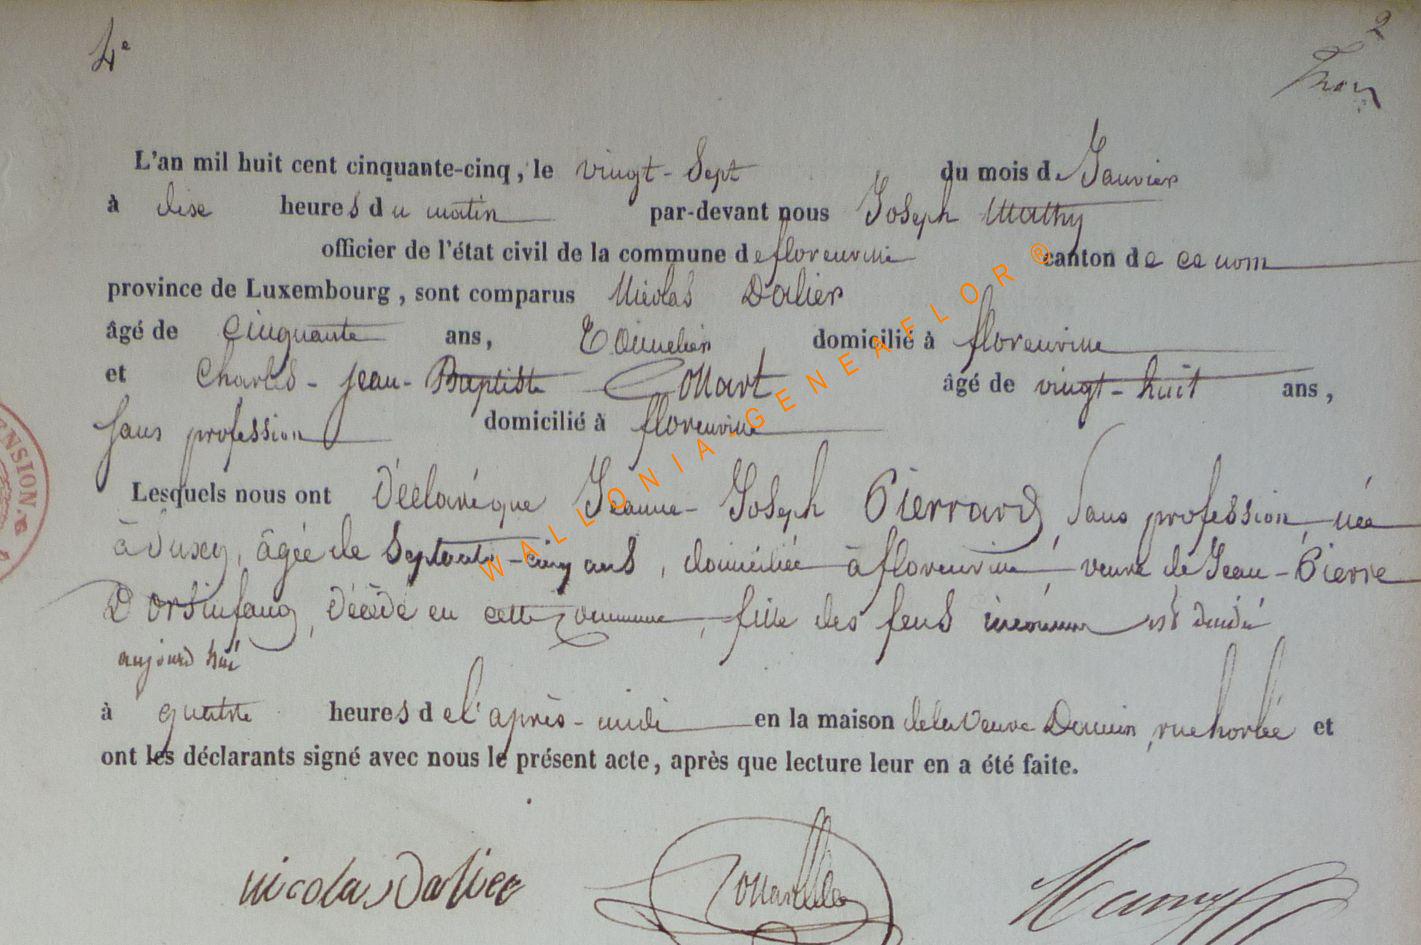 4e
2
L'an mil huit cent cinquante-cinq, le vingt-sept du mois de Janvier
à dixe heures du matin par-devant nous Joseph Mathy
officier de l'état civil de la commune de florenville canton de ce nom
province de Luxembourg, sont comparus Nicolas Dalier
âgé de Cinquante ans, Tonnelier domicilié à florenville
et Charles-Jean-Baptiste Collart âgé de vingt-huit ans,
sans profession domicilié à florenville
Lesquels nous ont Déclaré que Jeanne-Joseph Pierrard, sans profession, née
à Suxy, âgée de Septante-cinq ans, domiciliée à florenville, veuve de Jean-Pierre
Dorsinfang, décédé en cette commune, fille des feus est décédée
aujourd'hui
à quatre heures de l'après-midi en la maison de la Veuve rue et
ont les déclarants signé avec nous le présent acte, après que lecture leur en a été faite.
Nicolas Dalier
WALLONIA-GENEAFLOR ®
ENSION.